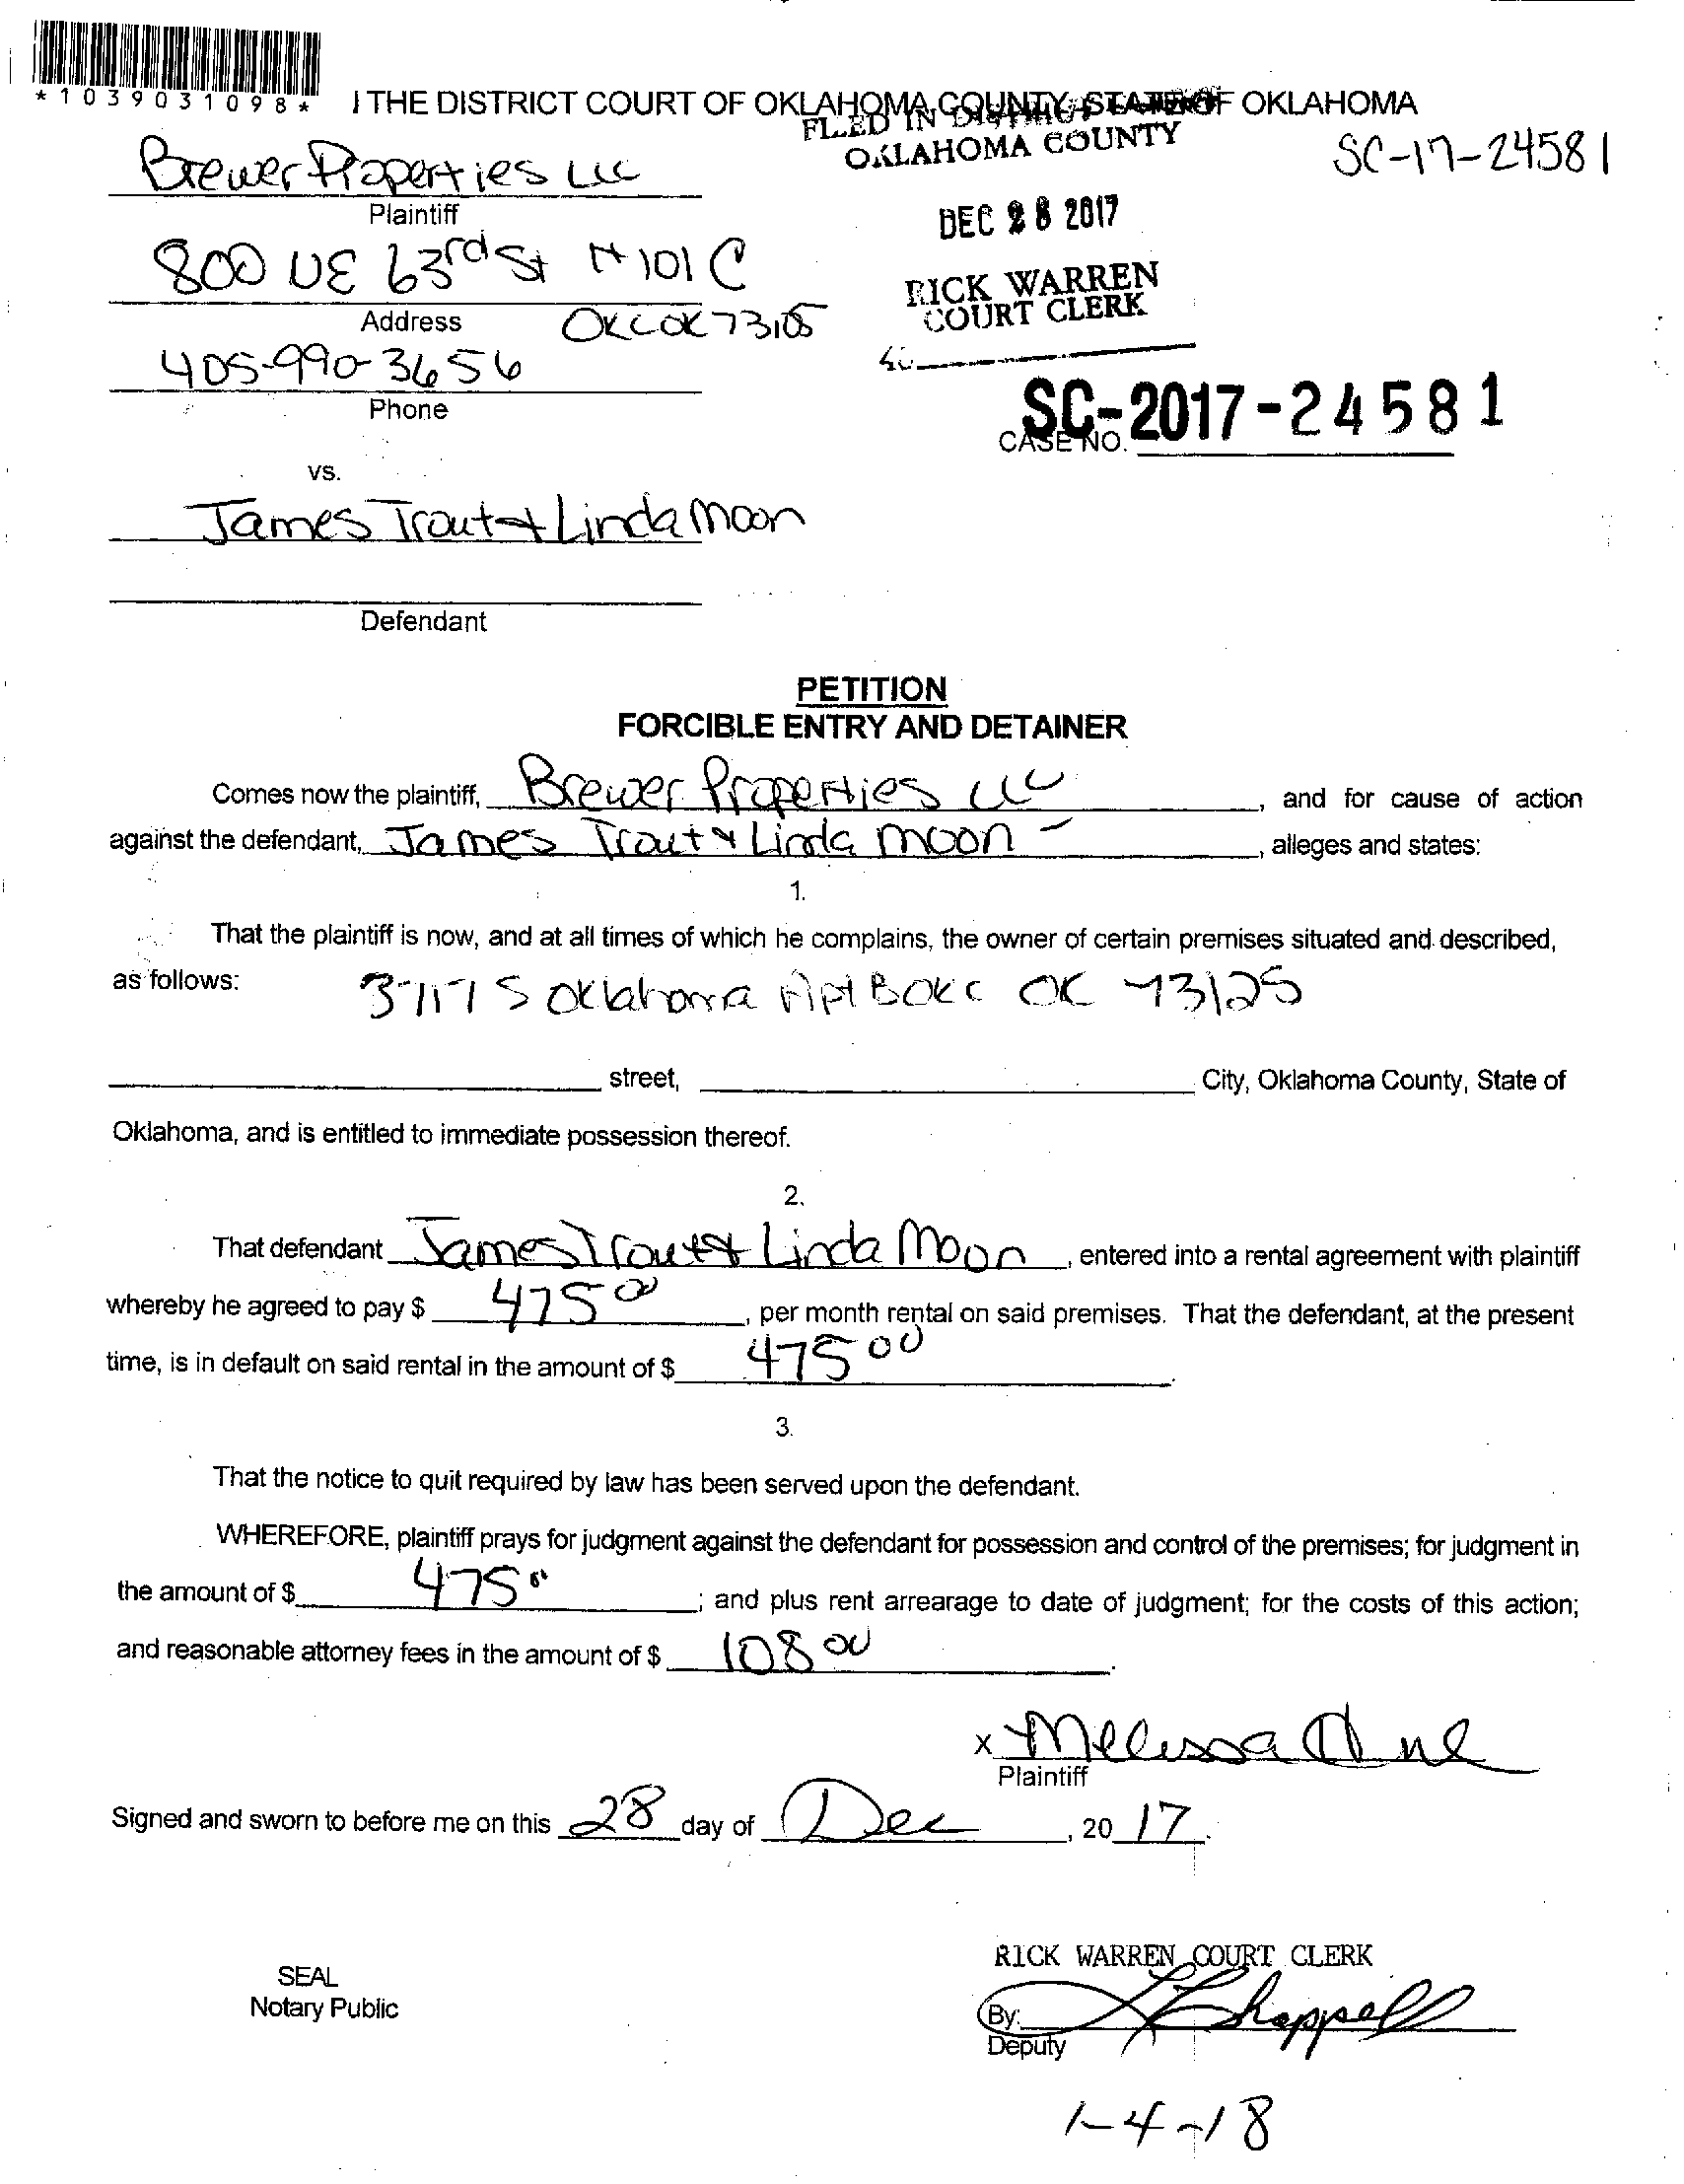 *1039031098*
I THE DISTRICT COURT OF OKLAHOMA COUNTY, STATE OF OKLAHOMA
FILED IN DISTRICT COURT
OKLAHOMA COUNTY
SC-17-24581
Brewer Properties LLC
Plaintiff
DEC 28 2017
800 NE 63rd St #101 C
RICK WARREN
COURT CLERK
Address
OKC OK 73105
405-990-3656
Phone
SC-2017-24581
CASE NO.
vs.
James Trout + Linda Moon
Defendant
PETITION
FORCIBLE ENTRY AND DETAINER
Comes now the plaintiff, Brewer Properties LLC, and for cause of action
against the defendant, James Trout & Linda Moon -, alleges and states:
1.
That the plaintiff is now, and at all times of which he complains, the owner of certain premises situated and described,
as follows: 3717 S Oklahoma Apt B OKC OK 73125
street, City, Oklahoma County, State of
Oklahoma, and is entitled to immediate possession thereof.
2.
That defendant James Trout + Linda Moon, entered into a rental agreement with plaintiff
whereby he agreed to pay $ 475 00, per month rental on said premises. That the defendant, at the present
time, is in default on said rental in the amount of $ 475 00.
3.
That the notice to quit required by law has been served upon the defendant.
WHEREFORE, plaintiff prays for judgment against the defendant for possession and control of the premises; for judgment in
the amount of $ 475 00; and plus rent arrearage to date of judgment; for the costs of this action;
and reasonable attorney fees in the amount of $ 108 00.
x Melissa
Plaintiff
Signed and sworn to before me on this 28 day of Dec, 20 17.
SEAL
Notary Public
RICK WARREN COURT CLERK
By: Chappell
Deputy
1-4-18